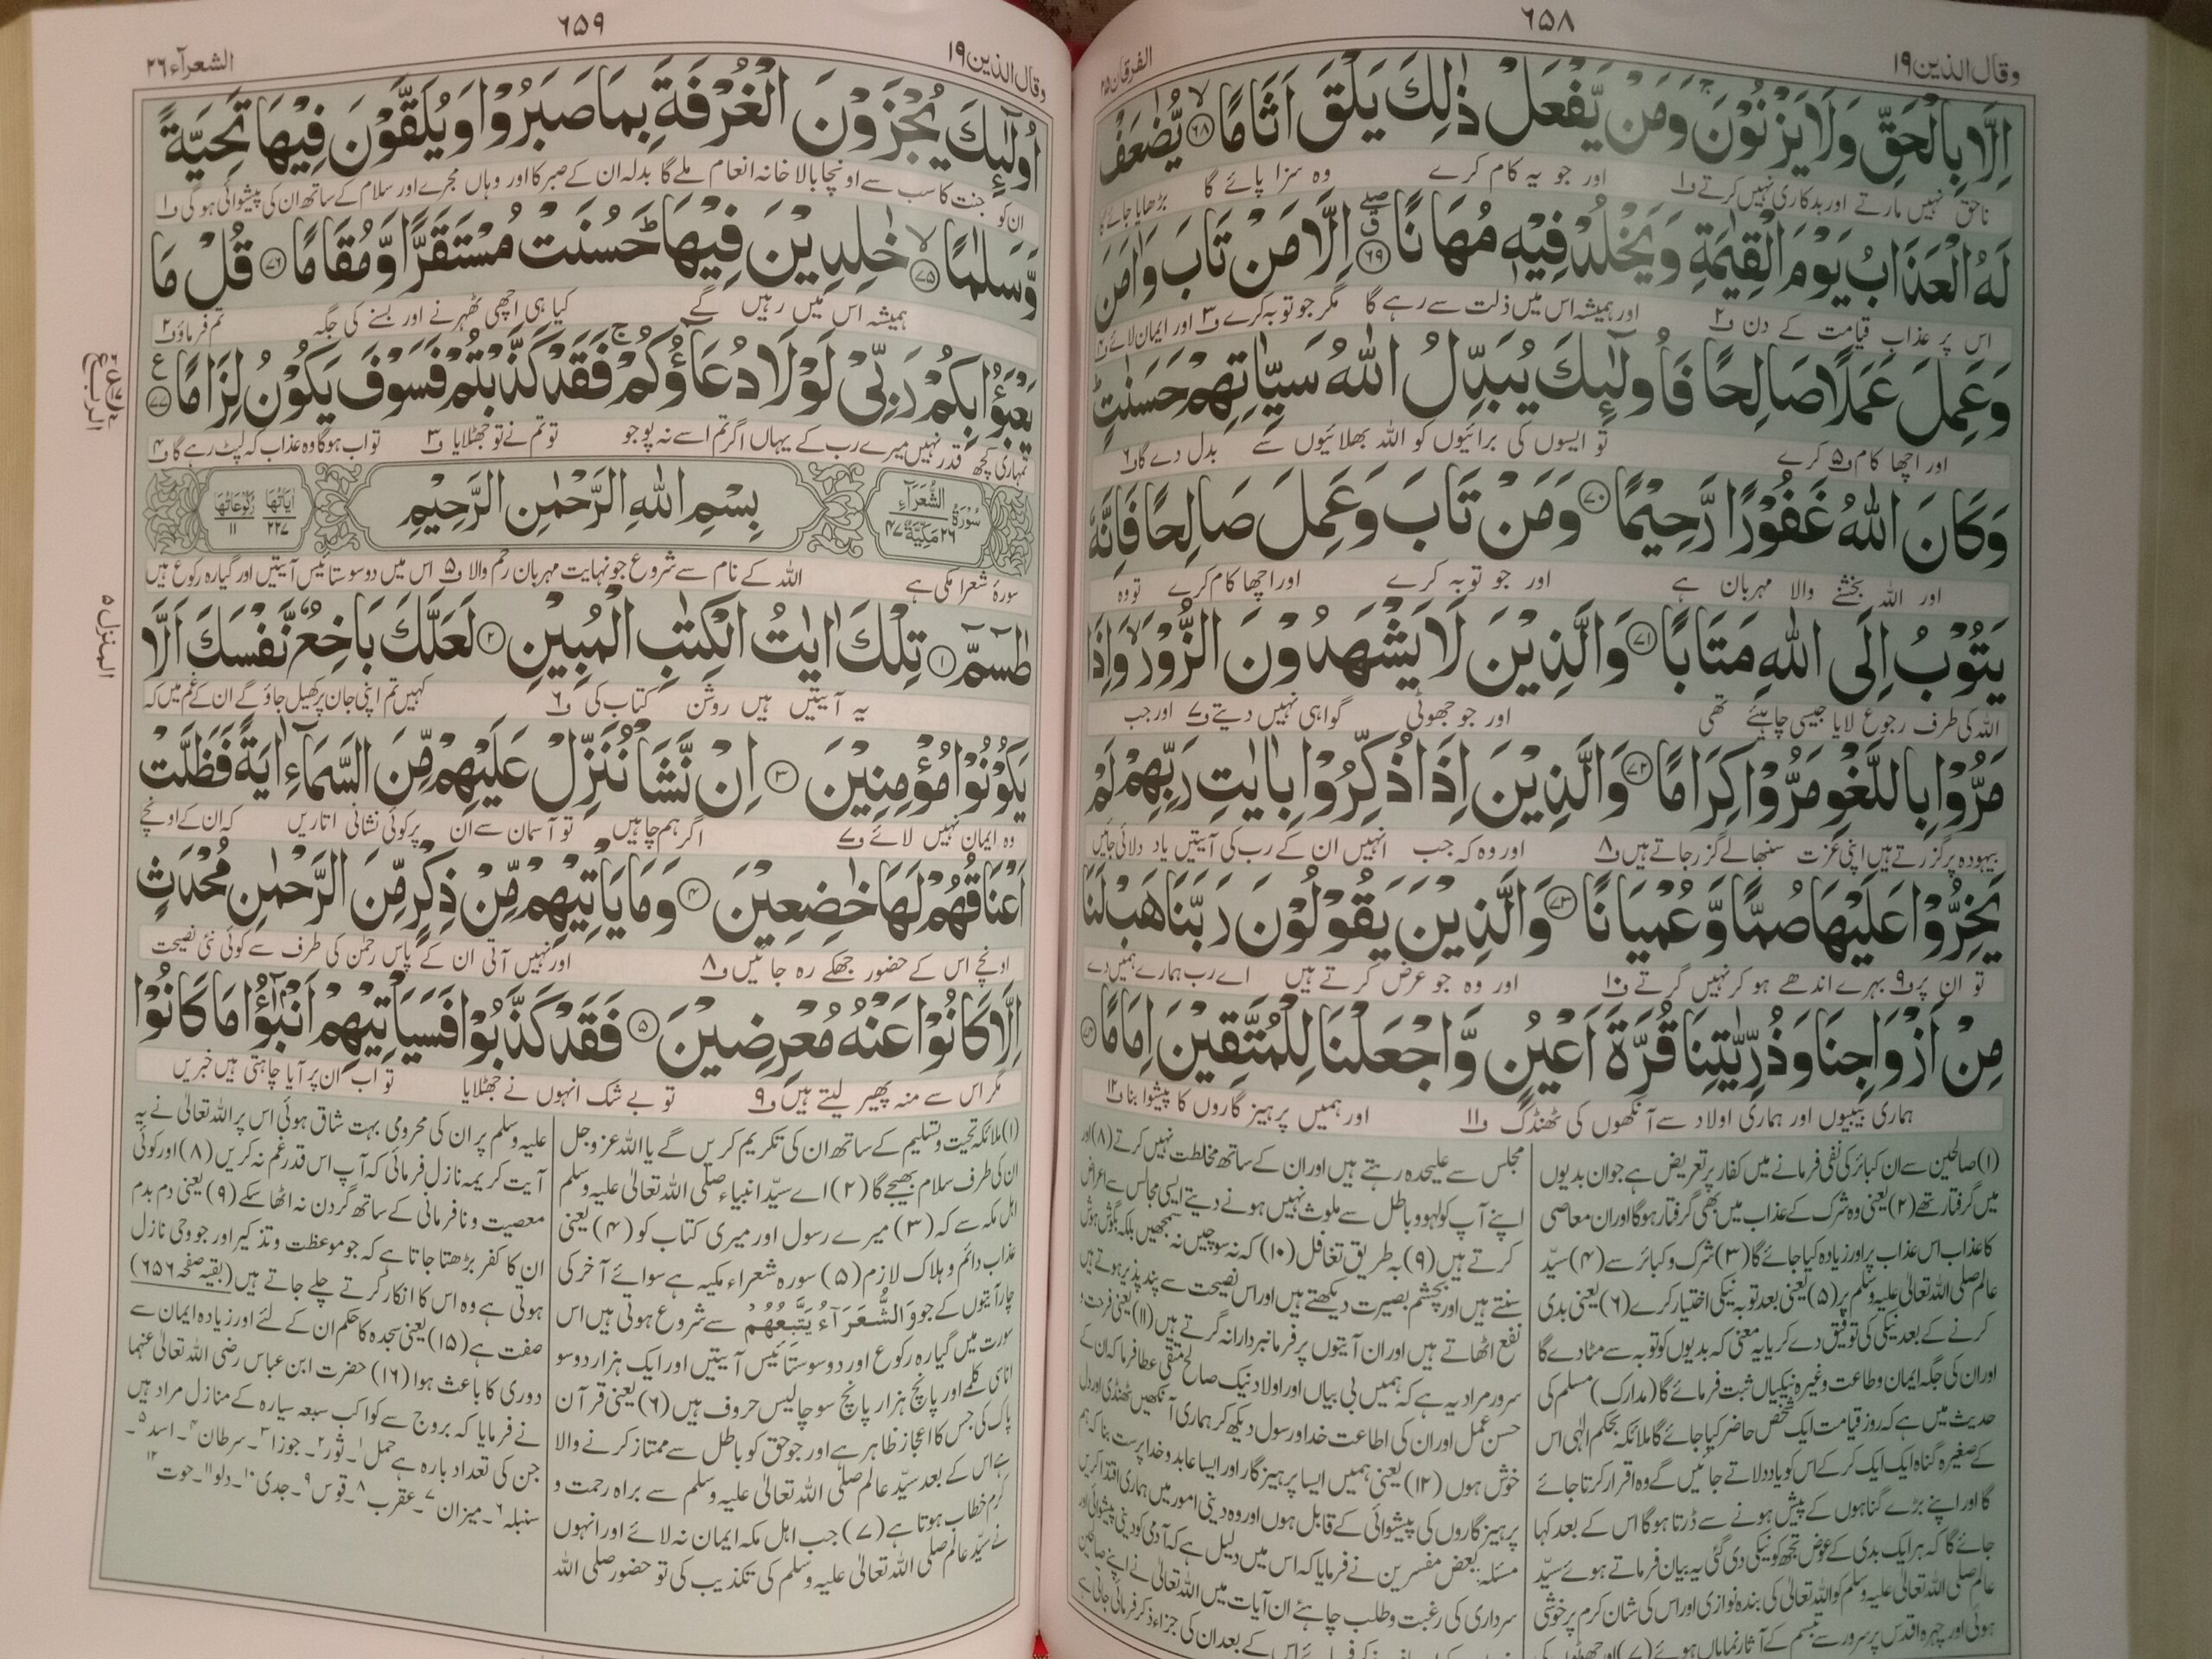 ٦٥٨
وقال الذین ١٩
الفرقان ٢٥
اِلَّا بِالْحَقِّ وَلَا یَزْنُوْنَ ۚ وَمَنْ یَّفْعَلْ ذٰلِكَ یَلْقَ اَثَامًا ﴿٦٨﴾ یُّضٰعَفْ
ناحق نہیں مارتے اور بدکاری نہیں کرتے ف۱ اور جو یہ کام کرے وہ سزا پائے گا بڑھایا جائے گا
لَهُ الْعَذَابُ یَوْمَ الْقِیٰمَةِ وَیَخْلُدْ فِیْهٖ مُهَانًا ﴿٦٩﴾ اِلَّا مَنْ تَابَ وَاٰمَنَ
اس پر عذاب قیامت کے دن ف۲ اور ہمیشہ اس میں ذلت سے رہے گا مگر جو توبہ کرے ف۳ اور ایمان لائے ف۴
وَعَمِلَ عَمَلًا صَالِحًا فَاُولٰٓئِكَ یُبَدِّلُ اللّٰهُ سَیِّاٰتِهِمْ حَسَنٰتٍ ؕ
اور اچھا کام ف۵ کرے تو ایسوں کی برائیوں کو اللہ بھلائیوں سے بدل دے گا ف۶
وَكَانَ اللّٰهُ غَفُوْرًا رَّحِیْمًا ﴿٧٠﴾ وَمَنْ تَابَ وَعَمِلَ صَالِحًا فَاِنَّهٗ
اور اللہ بخشنے والا مہربان ہے اور جو توبہ کرے اور اچھا کام کرے تو وہ
یَتُوْبُ اِلَى اللّٰهِ مَتَابًا ﴿٧١﴾ وَالَّذِیْنَ لَا یَشْهَدُوْنَ الزُّوْرَ ۙ وَاِذَا
اللہ کی طرف رجوع لایا جیسی چاہیئے تھی اور جو جھوٹی گواہی نہیں دیتے ف۷ اور جب
مَرُّوْا بِاللَّغْوِ مَرُّوْا كِرَامًا ﴿٧٢﴾ وَالَّذِیْنَ اِذَا ذُكِّرُوْا بِاٰیٰتِ رَبِّهِمْ لَمْ
بیہودہ پر گزرتے ہیں اپنی عزت سنبھالے گزر جاتے ہیں ف۸ اور وہ کہ جب انہیں ان کے رب کی آیتیں یاد دلائی جائیں
یَخِرُّوْا عَلَیْهَا صُمًّا وَّعُمْیَانًا ﴿٧٣﴾ وَالَّذِیْنَ یَقُوْلُوْنَ رَبَّنَا هَبْ لَنَا
تو ان پر ف۹ بہرے اندھے ہو کر نہیں گرتے ف۱۰ اور وہ جو عرض کرتے ہیں اے رب ہمارے ہمیں دے
مِنْ اَزْوَاجِنَا وَذُرِّیّٰتِنَا قُرَّةَ اَعْیُنٍ وَّاجْعَلْنَا لِلْمُتَّقِیْنَ اِمَامًا ﴿٧٤﴾
ہماری بیبیوں اور ہماری اولاد سے آنکھوں کی ٹھنڈک ف۱۱ اور ہمیں پرہیز گاروں کا پیشوا بنا ف۱۲
(۱) صالحین سے ان کبائر کی نفی فرمانے میں کفار پر تعریض ہے جو ان بدیوں
میں گرفتار تھے (۲) یعنی وہ شرک کے عذاب میں بھی گرفتار ہوگا اور ان معاصی
کا عذاب اس عذاب پر اور زیادہ کیا جائے گا (۳) شرک و کبائر سے (۴) سیّد
عالم صلی اللہ تعالیٰ علیہ وسلم پر (۵) یعنی بعد توبہ نیکی اختیار کرے (۶) یعنی بدی
کرنے کے بعد نیکی کی توفیق دے کر یا یہ معنی کہ بدیوں کو توبہ سے مٹا دے گا
اور ان کی جگہ ایمان وطاعت وغیرہ نیکیاں ثبت فرمائے گا (مدارک) مسلم کی
حدیث میں ہے کہ روز قیامت ایک شخص حاضر کیا جائے گا ملائکہ بحکم الٰہی اس
کے صغیرہ گناہ ایک ایک کرکے اس کو یاد دلاتے جائیں گے وہ اقرار کرتا جائے
گا اور اپنے بڑے گناہوں کے پیش ہونے سے ڈرتا ہوگا اس کے بعد کہا
جائے گا کہ ہر ایک بدی کے عوض تجھ کو نیکی دی گئی یہ بیان فرماتے ہوئے سیّد
عالم صلی اللہ تعالیٰ علیہ وسلم کو اللہ تعالیٰ کی بندہ نوازی اور اس کی شان کرم پر خوشی
ہوئی اور چہرہ اقدس پر سرور سے تبسم کے آثار نمایاں ہوئے (۷) اور
مجلس سے علیحدہ رہتے ہیں اور ان کے ساتھ مخالطت نہیں کرتے (۸) اور
اپنے آپ کو لہو و باطل سے ملوث نہیں ہونے دیتے ایسی مجالس سے اعراض
کرتے ہیں (۹) بہ طریق تغافل (۱۰) کہ نہ سوچیں نہ سمجھیں بلکہ بگوش ہوش
سنتے ہیں اور بچشم بصیرت دیکھتے ہیں اور اس نصیحت سے پند پذیر ہوتے ہیں
نفع اٹھاتے ہیں اور ان آیتوں پر فرمانبردارانہ گرتے ہیں (۱۱) یعنی فرحت و
سرور مراد یہ ہے کہ ہمیں بی بیاں اور اولاد نیک صالح متقی عطا فرما کہ ان کے
حسن عمل اور ان کی اطاعت خدا ور سول دیکھ کر ہماری آنکھیں ٹھنڈی اور دل
خوش ہوں (۱۲) یعنی ہمیں ایسا پرہیز گار اور ایسا عابد و خدا پرست بنا کہ ہم
پرہیز گاروں کی پیشوائی کے قابل ہوں اور وہ دینی امور میں ہماری اقتدا کریں
مسئلہ: بعض مفسرین نے فرمایا کہ اس میں دلیل ہے کہ آدمی کو دینی پیشوائی اور
سرداری کی رغبت و طلب چاہئے ان آیات میں اللہ تعالیٰ نے اپنے صالحین
کے بعد ان کی جزاء ذکر فرمائی جاتی ہے
٦٥٩
وقال الذین ١٩
الشعرآء ٢٦
اُولٰٓئِكَ یُجْزَوْنَ الْغُرْفَةَ بِمَا صَبَرُوْا وَیُلَقَّوْنَ فِیْهَا تَحِیَّةً
ان کو جنت کا سب سے اونچا بالا خانہ انعام ملے گا بدلہ ان کے صبر کا اور وہاں مجرے اور سلام کے ساتھ ان کی پیشوائی ہوگی ف۱
وَّسَلٰمًا ﴿٧٥﴾ خٰلِدِیْنَ فِیْهَا ؕ حَسُنَتْ مُسْتَقَرًّا وَّمُقَامًا ﴿٧٦﴾ قُلْ مَا
ہمیشہ اس میں رہیں گے کیا ہی اچھی ٹھہرنے اور بسنے کی جگہ تم فرماؤ ف۲
یَعْبَؤُا بِكُمْ رَبِّیْ لَوْلَا دُعَآؤُكُمْ ۚ فَقَدْ كَذَّبْتُمْ فَسَوْفَ یَكُوْنُ لِزَامًا ﴿٧٧﴾
تمہاری کچھ قدر نہیں میرے رب کے یہاں اگر تم اسے نہ پوجو تو تم نے تو جھٹلایا ف۳ تو اب ہوگا وہ عذاب کہ لپٹ رہے گا ف۴
سُوْرَةُ الشُّعَرَآءِ ٢٦ مَكِّیَّةٌ ٤٧
بِسْمِ اللّٰهِ الرَّحْمٰنِ الرَّحِیْمِ
اٰیَاتُهَا ٢٢٧ رُكُوْعَاتُهَا ١١
سورۂ شعرا مکی ہے اللہ کے نام سے شروع جو نہایت مہربان رحم والا ف۵ اس میں دو سو ستائیس آیتیں اور گیارہ رکوع ہیں
طٰسٓمّٓ ﴿١﴾ تِلْكَ اٰیٰتُ الْكِتٰبِ الْمُبِیْنِ ﴿٢﴾ لَعَلَّكَ بَاخِعٌ نَّفْسَكَ اَلَّا
یہ آیتیں ہیں روشن کتاب کی ف۶ کہیں تم اپنی جان پر کھیل جاؤ گے ان کے غم میں کہ
المنزل ٥
یَكُوْنُوْا مُؤْمِنِیْنَ ﴿٣﴾ اِنْ نَّشَاْ نُنَزِّلْ عَلَیْهِمْ مِّنَ السَّمَآءِ اٰیَةً فَظَلَّتْ
وہ ایمان نہیں لائے ف۷ اگر ہم چاہیں تو آسمان سے ان پر کوئی نشانی اتاریں کہ ان کے اونچے
اَعْنَاقُهُمْ لَهَا خٰضِعِیْنَ ﴿٤﴾ وَمَا یَاْتِیْهِمْ مِّنْ ذِكْرٍ مِّنَ الرَّحْمٰنِ مُحْدَثٍ
اونچے اس کے حضور جھکے رہ جائیں ف۸ اور نہیں آتی ان کے پاس رحمٰن کی طرف سے کوئی نئی نصیحت
اِلَّا كَانُوْا عَنْهُ مُعْرِضِیْنَ ﴿٥﴾ فَقَدْ كَذَّبُوْا فَسَیَاْتِیْهِمْ اَنْۢبٰٓؤُا مَا كَانُوْا
مگر اس سے منہ پھیر لیتے ہیں ف۹ تو بے شک انہوں نے جھٹلایا تو اب ان پر آیا چاہتی ہیں خبریں
(۱) ملائکہ تحیت و تسلیم کے ساتھ ان کی تکریم کریں گے یا اللہ عزوجل
ان کی طرف سلام بھیجے گا (۲) اے سیّد انبیاء صلی اللہ تعالیٰ علیہ وسلم
اہل مکہ سے کہ (۳) میرے رسول اور میری کتاب کو (۴) یعنی
عذاب دائم و ہلاک لازم (۵) سورہ شعراء مکیہ ہے سوائے آخر کی
چار آیتوں کے جو وَالشُّعَرَآءُ یَتَّبِعُهُمُ سے شروع ہوتی ہیں اس
سورت میں گیارہ رکوع اور دو سو ستائیس آیتیں اور ایک ہزار دو سو
اناسی کلمے اور پانچ ہزار پانچ سو چالیس حروف ہیں (۶) یعنی قرآن
پاک کی جس کا اعجاز ظاہر ہے اور جو حق کو باطل سے ممتاز کرنے والا
ہے اس کے بعد سیّد عالم صلی اللہ تعالیٰ علیہ وسلم سے براہ رحمت و
کرم خطاب ہوتا ہے (۷) جب اہل مکہ ایمان نہ لائے اور انہوں
نے سیّد عالم صلی اللہ تعالیٰ علیہ وسلم کی تکذیب کی تو حضور صلی اللہ
علیہ وسلم پر ان کی محرومی بہت شاق ہوئی اس پر اللہ تعالیٰ نے یہ
آیت کریمہ نازل فرمائی کہ آپ اس قدر غم نہ کریں (۸) اور کوئی
معصیت و نافرمانی کے ساتھ گردن نہ اٹھا سکے (۹) یعنی دم بدم
ان کا کفر بڑھتا جاتا ہے کہ جو موعظت و تذکیر اور جو وحی نازل
ہوتی ہے وہ اس کا انکار کرتے چلے جاتے ہیں (بقیہ صفحہ ۶۵۶)
صفت ہے (۱۵) یعنی سجدہ کا حکم ان کے لئے اور زیادہ ایمان سے
دوری کا باعث ہوا (۱۶) حضرت ابن عباس رضی اللہ تعالیٰ عنہما
نے فرمایا کہ بروج سے کواکب سبعہ سیارہ کے منازل مراد ہیں
جن کی تعداد بارہ ہے حمل۱۔ ثور۲۔ جوزا۳۔ سرطان۴۔ اسد۵۔
سنبلہ۶۔ میزان۷۔ عقرب۸۔ قوس۹۔ جدی۱۰۔ دلو۱۱۔ حوت۱۲